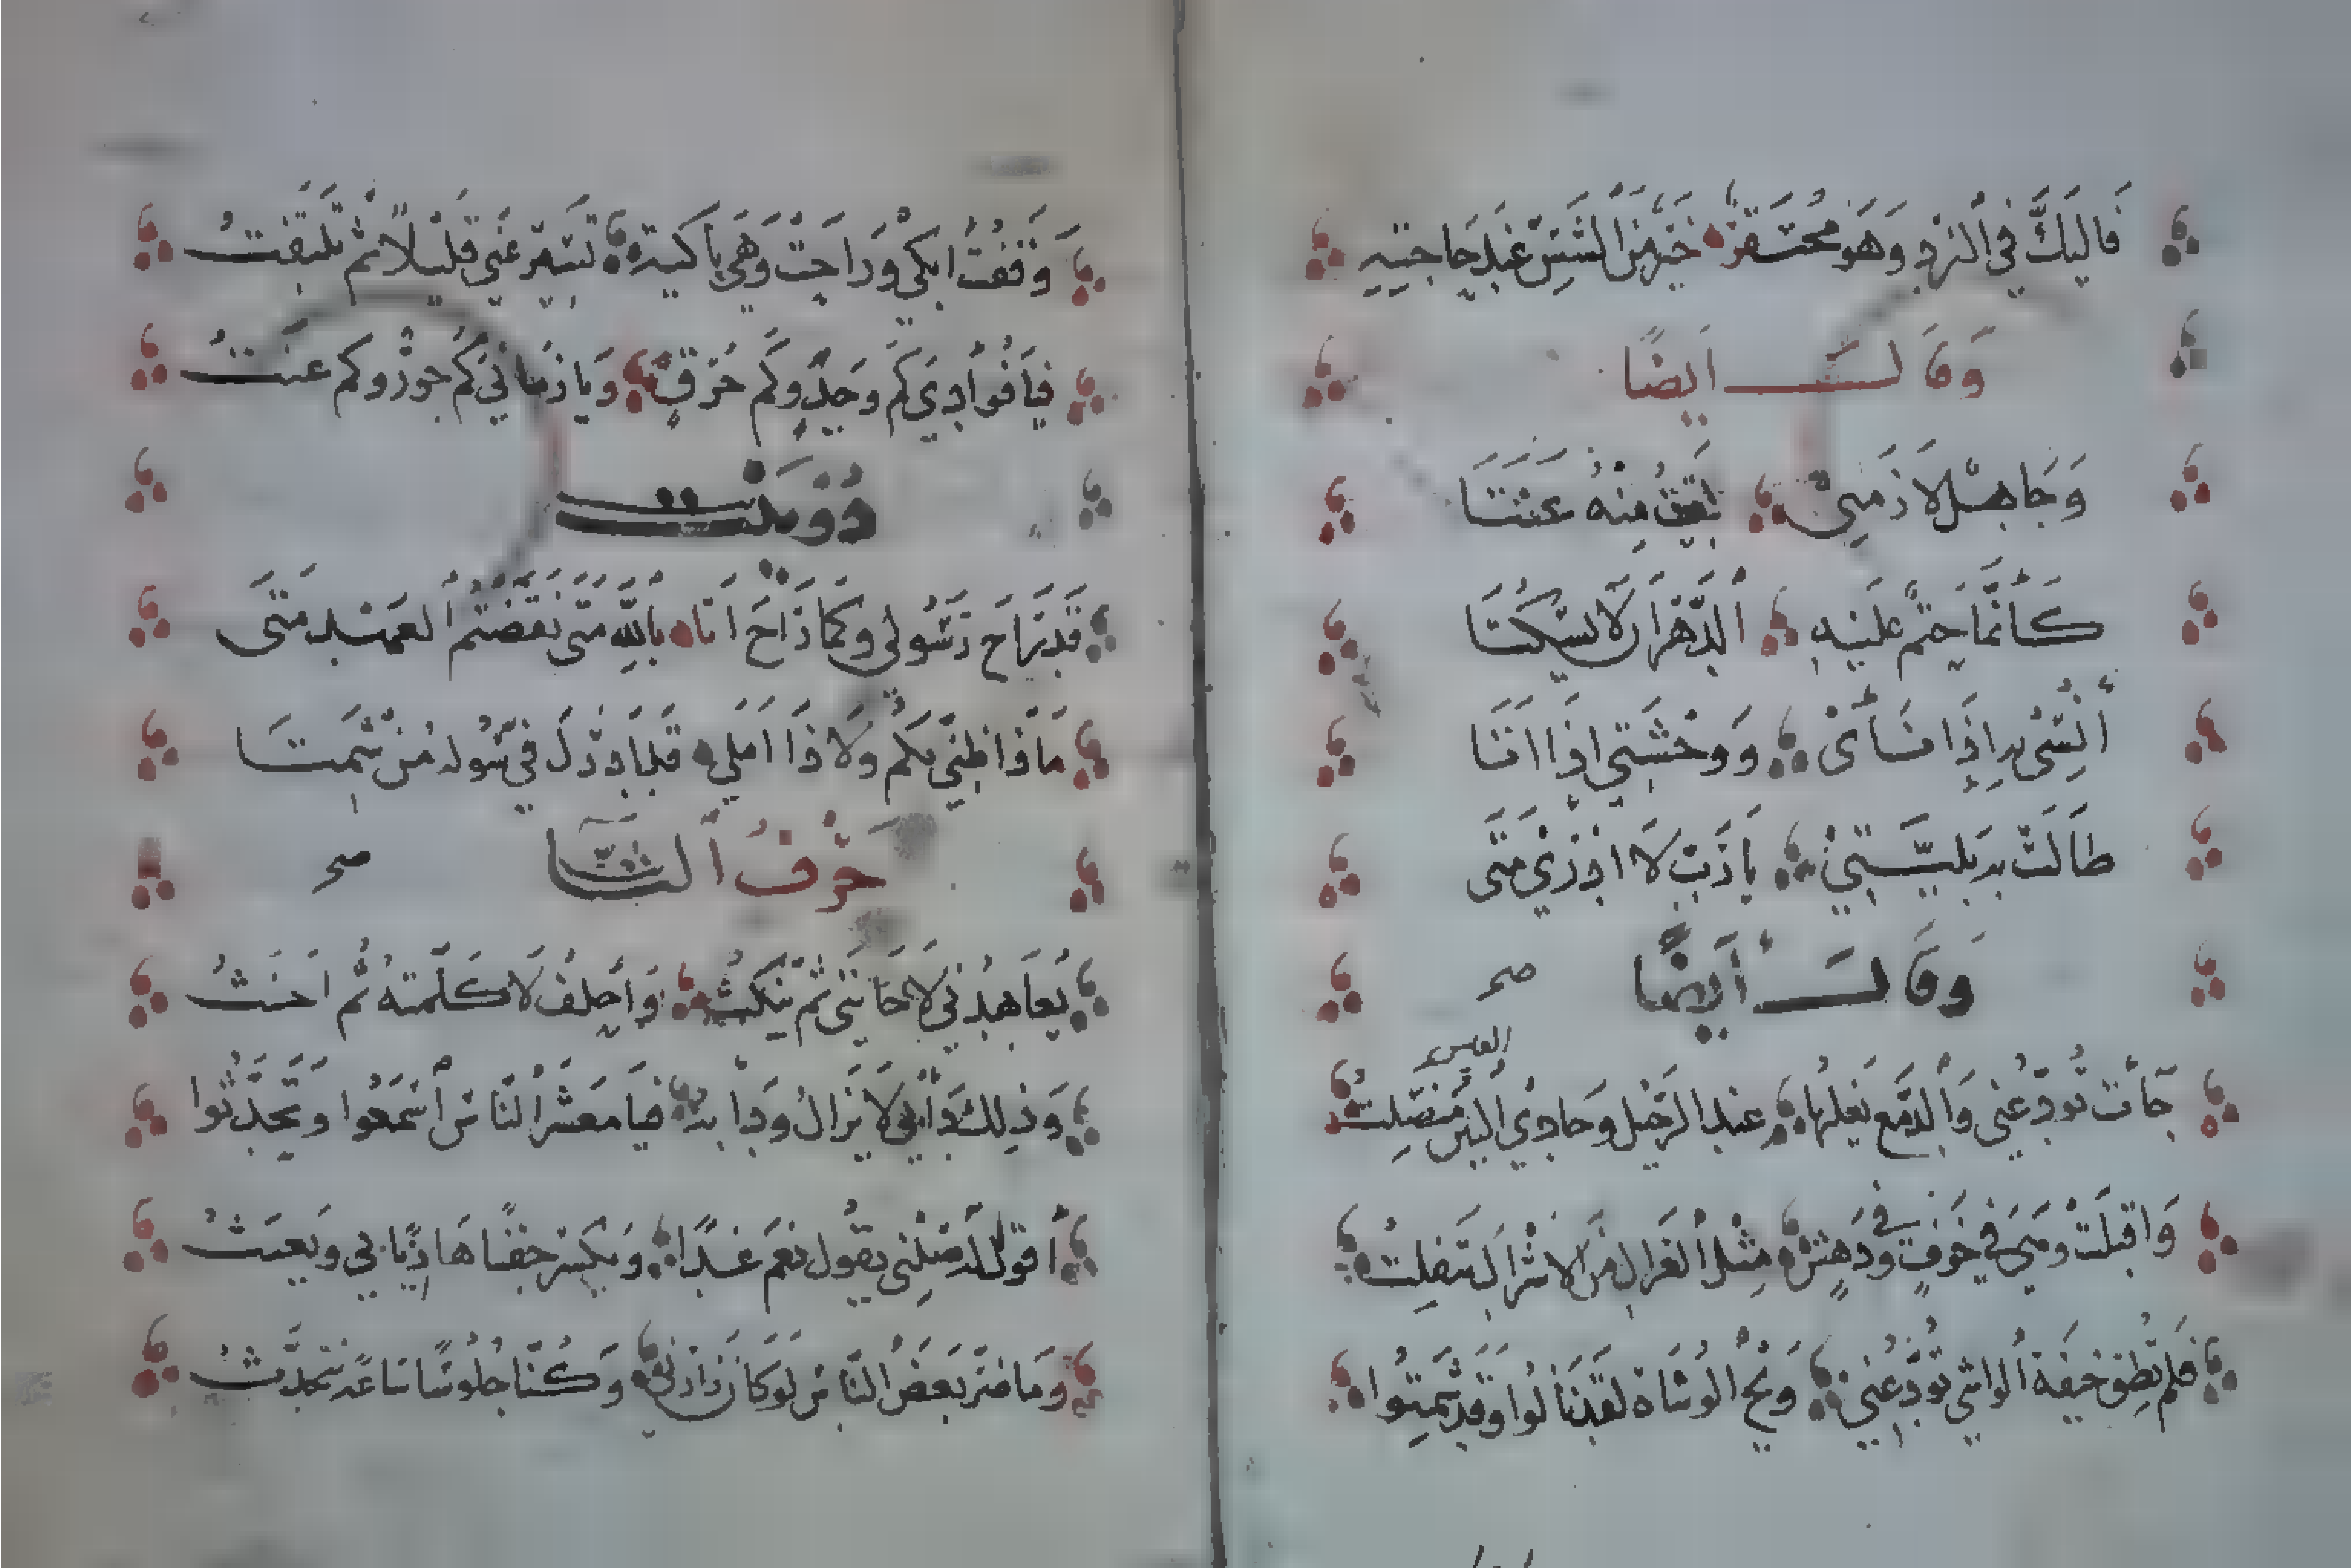 فَالَيكَ في النرد وَهَو محتَقرٌ خير من الشمس عند حاجته
وَقَالَ ايضًا
وَجَاهل لازَمني لقيتُ منهُ عَنَتَا
كَأنَّمَا حتم عَليَه الدَّهرَ ان لا يسكُتَا
أُنسي به إذَا نأى وَوحْشَتي اذَا اتَا
طَالَت به بليَّتي يا رَبّ لا اذ زى متَى
وَقَالَ أيضًا صحر
العيس
جَآت تودّعُني وَالدمع يغلبُها عند الرحيل وحادي البين منصلتُ
وَاقبلَتْ وَهيَ في خَوفٍ وَفي دَهشٍ مثلُ الغزَال من الاشرَاك ينفلتُ
فلم تُطق خيفة الواشي تودّعُني وَيحَ الوُشَاة لقد نَالُوا وقد شَمتُوا
وَقفتُ ابكي وَرَاحَتْ وَهيَ باكية تسير عَني قليلًا ثم تلتفتُ
فيَا فُوأدي كم وجدٍ وكَم حُرَقٍ وَيا زمَاني كم جورٌ وكم عنتُ
دُوبيت
قَد رَاح رَسُولي وكَمَا رَاحَ اتَا بالله متى نقَضتُم العهد متَى
مَا ذا ظني بكم وَلا ذَا امَلي قد ادرَكَ فيَّ سُوله من شَمتَا
حَرْفُ الثَّا صحر
يُعَاهدُني لا خَانَني ثم ينكُثُ وَأحلفُ لا كلّمتهُ ثم احنثُ
وَذلكَ دَأبي لا يَزالُ ودَابه فيَا معشرَ النَّاس أسْمَعُوا وَتحدَّثُوا
أقولُ له صلني يقُول نعَم غدًا وَيكسر جفنًا هَازيًا بي وَيعبَثُ
وَمَا ضرَّ بَعضَ النَّاس لو كان زَارني وَكُنَّا جُلُوسًا سَاعَة نتحدَّثُ